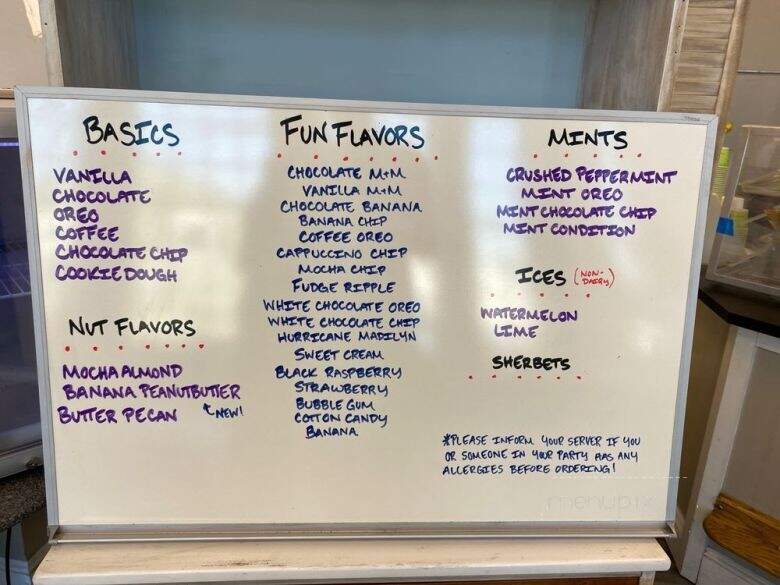 BASICS
VANILLA
CHOCOLATE
OREO
COFFEE
CHOCOLATE CHIP
COOKIE DOUGH
NUT FLAVORS
MOCHA ALMOND
BANANA PEANUTBUTTER
BUTTER PECAN
NEW!
FUN FLAVORS
CHOCOLATE M+M
VANILLA M+M
CHOCOLATE BANANA
BANANA CHIP
COFFEE OREO
CAPPUCCINO CHIP
MOCHA CHIP
FUDGE RIPPLE
WHITE CHOCOLATE OREO
WHITE CHOCOLATE CHIP
HURRICANE MADILYN
SWEET CREAM
BLACK RASPBERRY
STRAWBERRY
BUBBLE GUM
COTTON CANDY
BANANA
MINTS
CRUSHED PEPPERMINT
MINT OREO
MINT CHOCOLATE CHIP
MINT CONDITION
ICES (NON-
DAIRY)
WATERMELON
LIME
SHERBETS
*PLEASE INFORM YOUR SERVER IF YOU
OR SOMEONE IN YOUR PARTY HAS ANY
ALLERGIES BEFORE ORDERING!
menupix